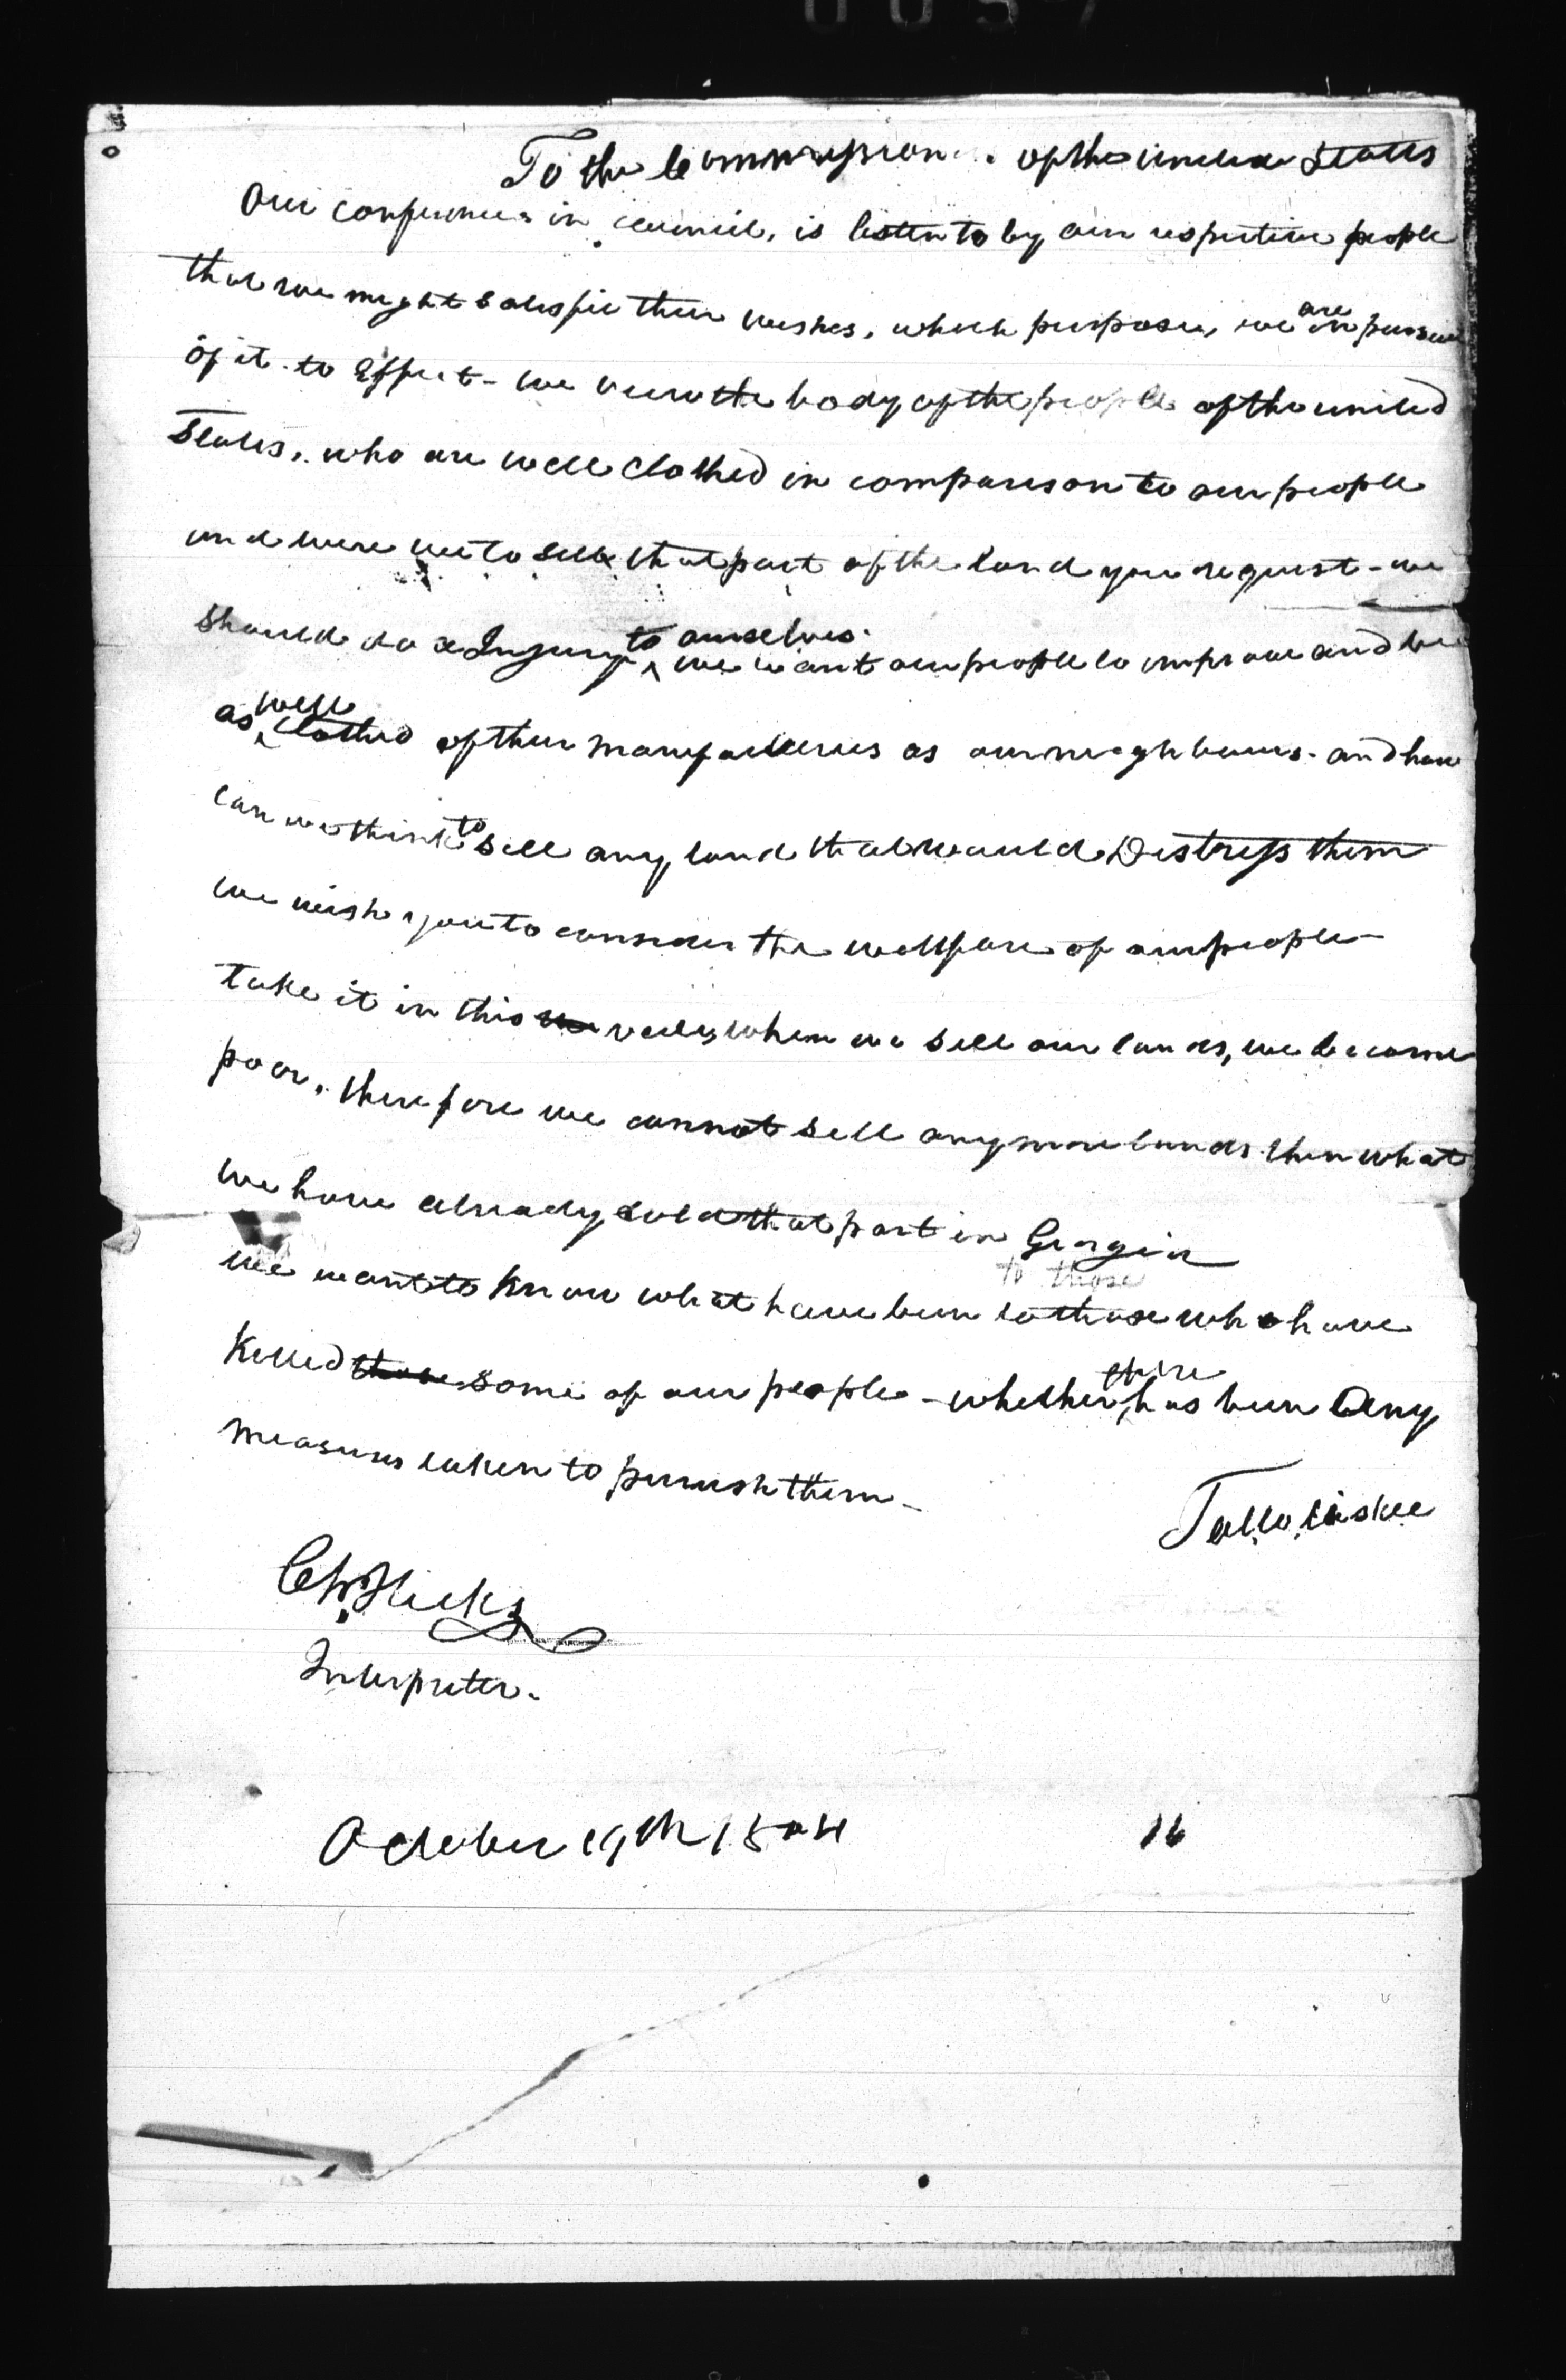 To the Commissioners of the united States
Our conferences in council, is listen to by our respective people
that we might satisfie their wishes, which purposes, we are in pursuit
of it to Effect - we view the body of the people of the united
States, who are well Clothed in comparison to our people
and were we to sell that part of the land you request - we
should do a Injury to ourselves. we want our people to improve and be
as well Clothed of their manufactures as our neighbours - and how
can we think to sell any land that would Distress them
we wish you to consider the wellfare of our people -
take it in this when we sell our lands, we become
poor, therefore we cannot sell any more lands then what
we have already sold that part in Georgia
to those
we want to know what have been to those who have
Killed those some of our people - whether there has been Any
measures taken to punish them -
Tallotiskee
Ch. Hicks
Interpreter.
October 19th 1804 16